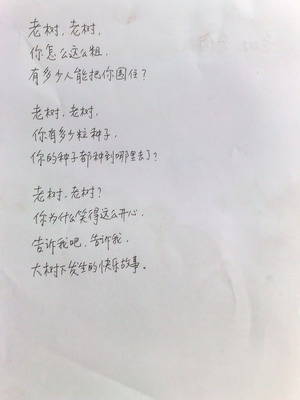 老树，老树，
你怎么这么粗，
有多少人能把你围住？
老树，老树，
你有多少粒种子，
你的种子都种到哪里去了？
老树，老树？
你为什么笑得这么开心，
告诉我吧，告诉我，
大树下发生的快乐故事。